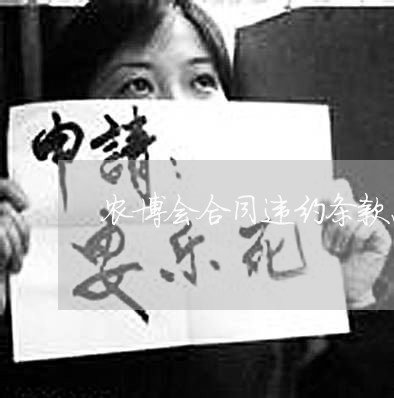 申請：
农博会合同违约条款
安乐死